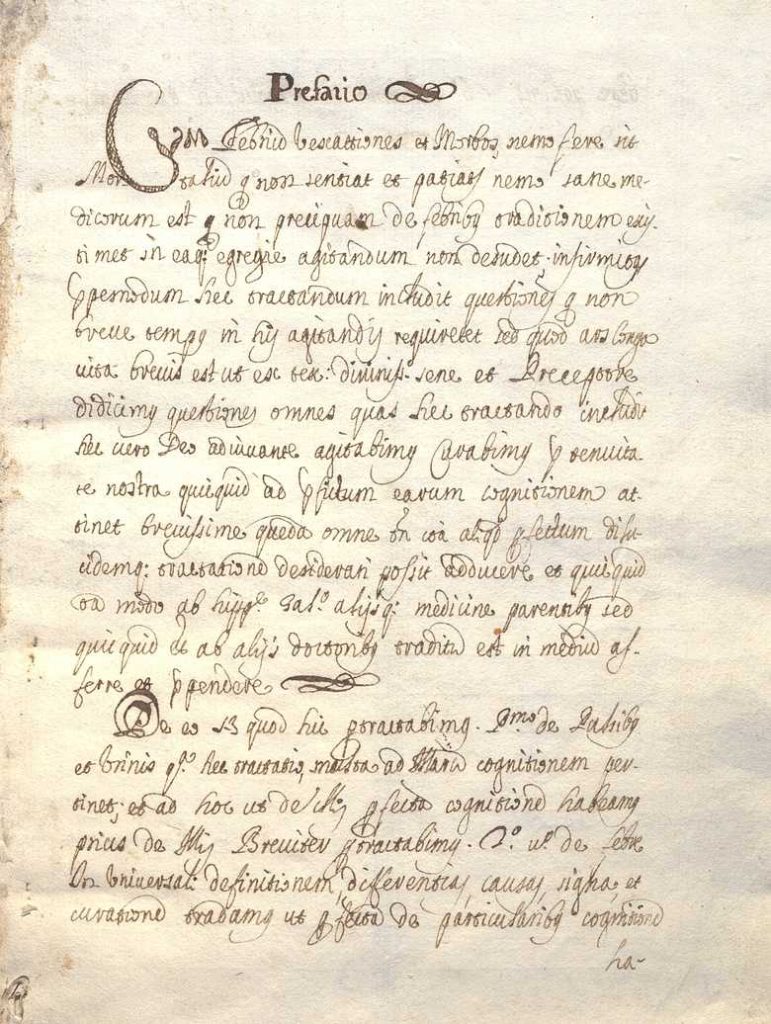 Prefatio
Cum Febriũ vexationes et Morbos, nemo fere sit
Mortaliũ q̃ non sentiat et patiat' nemo sane me-
dicorum est q̃ non preciquam de febribq traditionem exis-
timet in eaq; egregie agitandum non desudet. infirmitq
ppemodum hec tractandum includit questiones q̃ non
breve tempq in his agitandis requireret sed quod ars longa
vita brevis est ut ex tex: diviniss. sene et Preceptore
didicimq questiones omnes quas hec tractando includit
hec vero Deo adiuvante agitabimq Curabimq p tenuita
te nostra quicquid ad psictum earum cognitionem at-
tinet brevissime omne tñ ità aliqd psectum
tractationẽ desiderari possit adducere et quicquid
tã modo ab hippe. Galo. alijsq; medicine parentibq sed
quicquid et ab alijs doctoribq traditũ est in mediũ af-
ferre et ppendere
De eo quod hic ptractabimq. Pmo de Pulsibq
et Vrinis qa. hec tractatio, multa ad Mariũ cognitionem per-
tinet; et ad hoc ut de Illis pfecta cognitionẽ habeamq
prius de Illis Breviter ptractabimq. 2o. vo. de febre
In Universali definitionem, differentias causas signa et
curationẽ tradamq ut pfecta de particularibq cognitionẽ
ha-